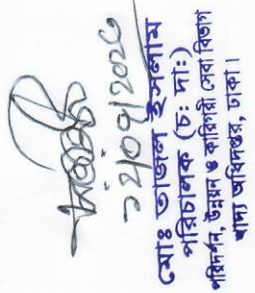 মোঃ তাজল ইসলাম
পরিচালক (চ: দা:)
পরিদর্শন, উন্নয়ন ও কারিগরী সেবা বিভাগ
খাদ্য অধিদপ্তর, ঢাকা।